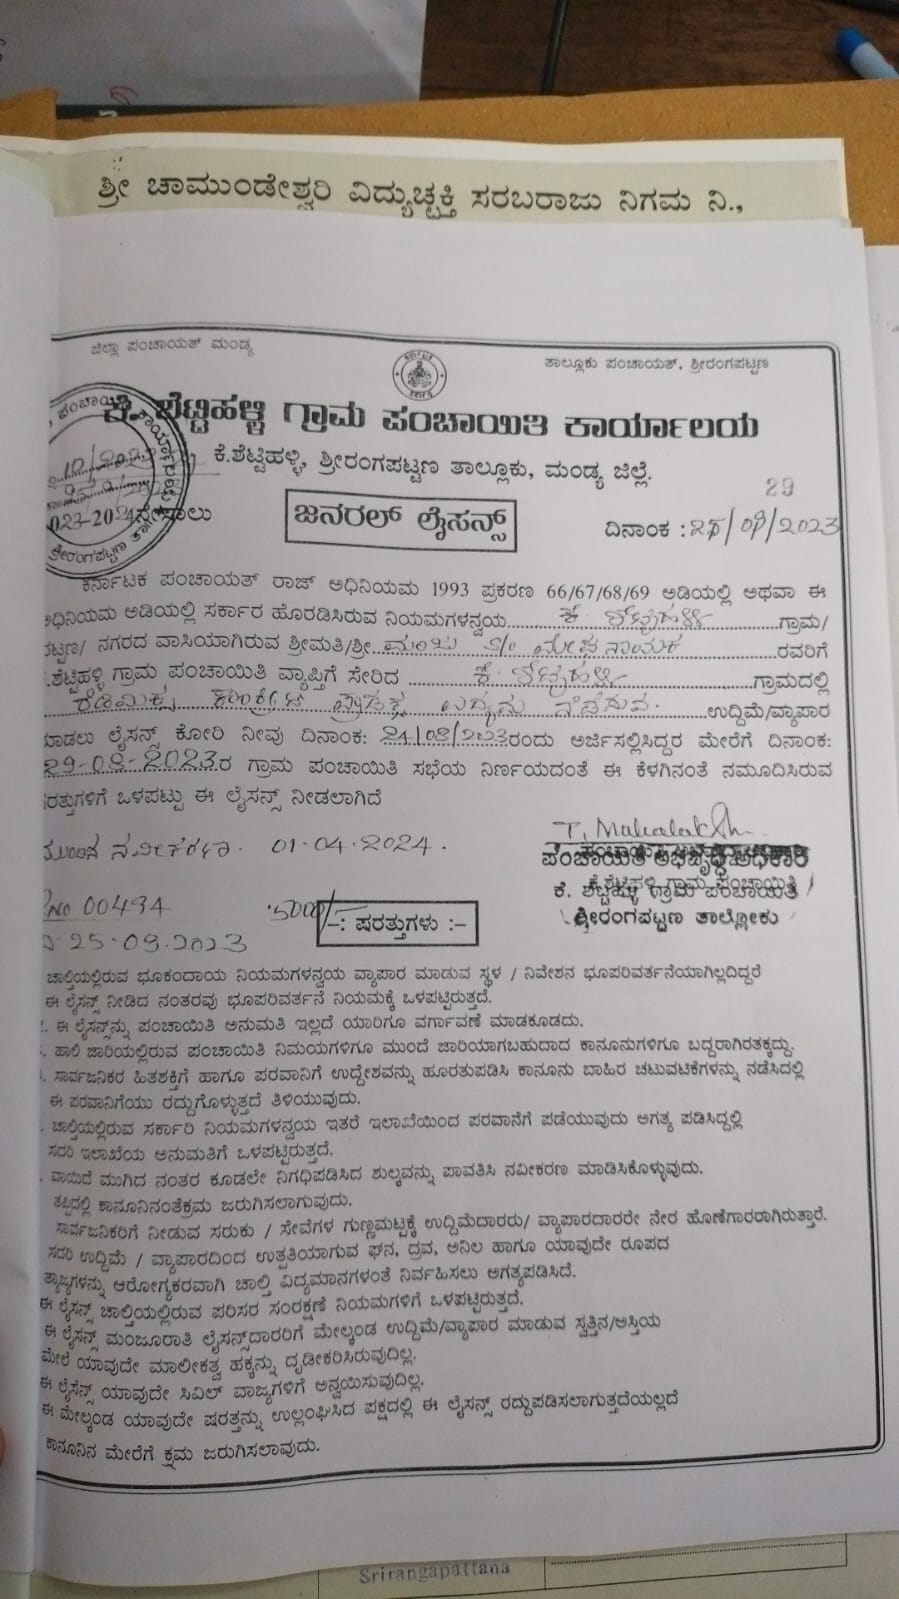 ಶ್ರೀ ಚಾಮುಂಡೇಶ್ವರಿ ವಿದ್ಯುಚ್ಛಕ್ತಿ ಸರಬರಾಜು ನಿಗಮ ನಿ.,
ಜಿಲ್ಲಾ ಪಂಚಾಯತ್ ಮಂಡ್ಯ
ತಾಲ್ಲೂಕು ಪಂಚಾಯತ್, ಶ್ರೀರಂಗಪಟ್ಟಣ
ಕೆ. ಶೆಟ್ಟಿಹಳ್ಳಿ ಗ್ರಾಮ ಪಂಚಾಯಿತಿ ಕಾರ್ಯಾಲಯ
ಕೆ.ಶೆಟ್ಟಿಹಳ್ಳಿ, ಶ್ರೀರಂಗಪಟ್ಟಣ ತಾಲ್ಲೂಕು, ಮಂಡ್ಯ ಜಿಲ್ಲೆ.
29
023-2024ನೇ ಸಾಲು ಜನರಲ್ ಲೈಸನ್ಸ್ ದಿನಾಂಕ :
ಕರ್ನಾಟಕ ಪಂಚಾಯತ್ ರಾಜ್ ಅಧಿನಿಯಮ 1993 ಪ್ರಕರಣ 66/67/68/69 ಅಡಿಯಲ್ಲಿ ಅಥವಾ ಈ
ಅಡಿಯಲ್ಲಿ ಸರ್ಕಾರ ಹೊರಡಿಸಿರುವ ನಿಯಮಗಳನ್ವಯ ಕೆ. ಶೆಟ್ಟಹಳ್ಳಿ ಗ್ರಾಮ/
ನಗರದ ವಾಸಿಯಾಗಿರುವ ಶ್ರೀಮತಿ/ಶ್ರೀ ಮಂಜು S/o ರವರಿಗೆ
.ಶೆಟ್ಟಿಹಳ್ಳಿ ಗ್ರಾಮ ಪಂಚಾಯಿತಿ ವ್ಯಾಪ್ತಿಗೆ ಸೇರಿದ ಕೆ. ಶೆಟ್ಟಹಳ್ಳಿ ಗ್ರಾಮದಲ್ಲಿ
ರೆಡಿಮಿಕ್ಸ್ ಕಾಂಕ್ರೀಟ್ ಉದ್ಯಮ ನೆಡೆಸುವ ಉದ್ದಿಮೆ/ವ್ಯಾಪಾರ
ಮಾಡಲು ಲೈಸನ್ಸ್ ಕೋರಿ ನೀವು ದಿನಾಂಕ: 24/08/2023ರಂದು ಅರ್ಜಿಸಲ್ಲಿಸಿದ್ದರ ಮೇರೆಗೆ ದಿನಾಂಕ:
29-08-2023ರ ಗ್ರಾಮ ಪಂಚಾಯಿತಿ ಸಭೆಯ ನಿರ್ಣಯದಂತೆ ಈ ಕೆಳಗಿನಂತೆ ನಮೂದಿಸಿರುವ
ಷರತ್ತುಗಳಿಗೆ ಒಳಪಟ್ಟು ಈ ಲೈಸನ್ಸ್ ನೀಡಲಾಗಿದೆ
ಮುಂದಿನ ನವೀಕರಣ. 01.04.2024.
ಪಂಚಾಯಿತಿ ಅಭಿವೃದ್ಧಿ ಅಧಿಕಾರಿ
ಕೆ. ಶೆಟ್ಟಿಹಳ್ಳಿ ಗ್ರಾಮ ಪಂಚಾಯಿತಿ
ಶ್ರೀರಂಗಪಟ್ಟಣ ತಾಲ್ಲೋಕು
No 00494 5000/-
-: ಷರತ್ತುಗಳು :-
25.09.2023
ಚಾಲ್ತಿಯಲ್ಲಿರುವ ಭೂಕಂದಾಯ ನಿಯಮಗಳನ್ವಯ ವ್ಯಾಪಾರ ಮಾಡುವ ಸ್ಥಳ / ನಿವೇಶನ ಭೂಪರಿವರ್ತನೆಯಾಗಿಲ್ಲದಿದ್ದರೆ
ಈ ಲೈಸನ್ಸ್ ನೀಡಿದ ನಂತರವು ಭೂಪರಿವರ್ತನೆ ನಿಯಮಕ್ಕೆ ಒಳಪಟ್ಟಿರುತ್ತದೆ.
ಈ ಲೈಸನ್ಸ್‌ನ್ನು ಪಂಚಾಯಿತಿ ಅನುಮತಿ ಇಲ್ಲದೆ ಯಾರಿಗೂ ವರ್ಗಾವಣೆ ಮಾಡಕೂಡದು.
ಹಾಲಿ ಜಾರಿಯಲ್ಲಿರುವ ಪಂಚಾಯಿತಿ ನಿಮಯಗಳಿಗೂ ಮುಂದೆ ಜಾರಿಯಾಗಬಹುದಾದ ಕಾನೂನುಗಳಿಗೂ ಬದ್ದರಾಗಿರತಕ್ಕದ್ದು.
ಸಾರ್ವಜನಿಕರ ಹಿತಶಕ್ತಿಗೆ ಹಾಗೂ ಪರವಾನಿಗೆ ಉದ್ದೇಶವನ್ನು ಹೂರತುಪಡಿಸಿ ಕಾನೂನು ಬಾಹಿರ ಚಟುವಟಿಕೆಗಳನ್ನು ನಡೆಸಿದಲ್ಲಿ
ಈ ಪರವಾನಿಗೆಯು ರದ್ದುಗೊಳ್ಳುತ್ತದೆ ತಿಳಿಯುವುದು.
ಚಾಲ್ತಿಯಲ್ಲಿರುವ ಸರ್ಕಾರಿ ನಿಯಮಗಳನ್ವಯ ಇತರೆ ಇಲಾಖೆಯಿಂದ ಪರವಾನೆಗೆ ಪಡೆಯುವುದು ಅಗತ್ಯ ಪಡಿಸಿದ್ದಲ್ಲಿ
ಸದರಿ ಇಲಾಖೆಯ ಅನುಮತಿಗೆ ಒಳಪಟ್ಟಿರುತ್ತದೆ.
ವಾಯಿದೆ ಮುಗಿದ ನಂತರ ಕೂಡಲೇ ನಿಗಧಿಪಡಿಸಿದ ಶುಲ್ಕವನ್ನು ಪಾವತಿಸಿ ನವೀಕರಣ ಮಾಡಿಸಿಕೊಳ್ಳುವುದು.
ತಪ್ಪಿದಲ್ಲಿ ಕಾನೂನಿನಂತೆಕ್ರಮ ಜರುಗಿಸಲಾಗುವುದು.
ಸಾರ್ವಜನಿಕರಿಗೆ ನೀಡುವ ಸರುಕು / ಸೇವೆಗಳ ಗುಣ್ಣಮಟ್ಟಕ್ಕೆ ಉದ್ದಿಮೆದಾರರು/ ವ್ಯಾಪಾರದಾರರೇ ನೇರ ಹೊಣೆಗಾರರಾಗಿರುತ್ತಾರೆ.
ಸದರಿ ಉದ್ದಿಮೆ / ವ್ಯಾಪಾರದಿಂದ ಉತ್ಪತಿಯಾಗುವ ಘನ, ದ್ರವ, ಅನಿಲ ಹಾಗೂ ಯಾವುದೇ ರೂಪದ
ತ್ಯಾಜ್ಯಗಳನ್ನು ಆರೋಗ್ಯಕರವಾಗಿ ಚಾಲ್ತಿ ವಿದ್ಯಮಾನಗಳಂತೆ ನಿರ್ವಹಿಸಲು ಅಗತ್ಯಪಡಿಸಿದೆ.
ಈ ಲೈಸನ್ಸ್ ಚಾಲ್ತಿಯಲ್ಲಿರುವ ಪರಿಸರ ಸಂರಕ್ಷಣೆ ನಿಯಮಗಳಿಗೆ ಒಳಪಟ್ಟಿರುತ್ತದೆ.
ಈ ಲೈಸನ್ಸ್ ಮಂಜೂರಾತಿ ಲೈಸನ್ಸ್‌ದಾರರಿಗೆ ಮೇಲ್ಕಂಡ ಉದ್ದಿಮೆ/ವ್ಯಾಪಾರ ಮಾಡುವ ಸ್ವತ್ತಿನ/ಅಸ್ತಿಯ
ಮೇಲೆ ಯಾವುದೇ ಮಾಲೀಕತ್ವ ಹಕ್ಕನ್ನು ದೃಡೀಕರಿಸಿರುವುದಿಲ್ಲ.
ಈ ಲೈಸೆನ್ಸ್ ಯಾವುದೇ ಸಿವಿಲ್ ವಾಜ್ಯಗಳಿಗೆ ಅನ್ವಯಿಸುವುದಿಲ್ಲ.
ಈ ಮೇಲ್ಕಂಡ ಯಾವುದೇ ಷರತ್ತನ್ನು ಉಲ್ಲಂಘಿಸಿದ ಪಕ್ಷದಲ್ಲಿ ಈ ಲೈಸನ್ಸ್ ರದ್ದುಪಡಿಸಲಾಗುತ್ತದೆಯಲ್ಲದೆ
ಕಾನೂನಿನ ಮೇರೆಗೆ ಕ್ರಮ ಜರುಗಿಸಲಾವುದು.
Srirangapattana